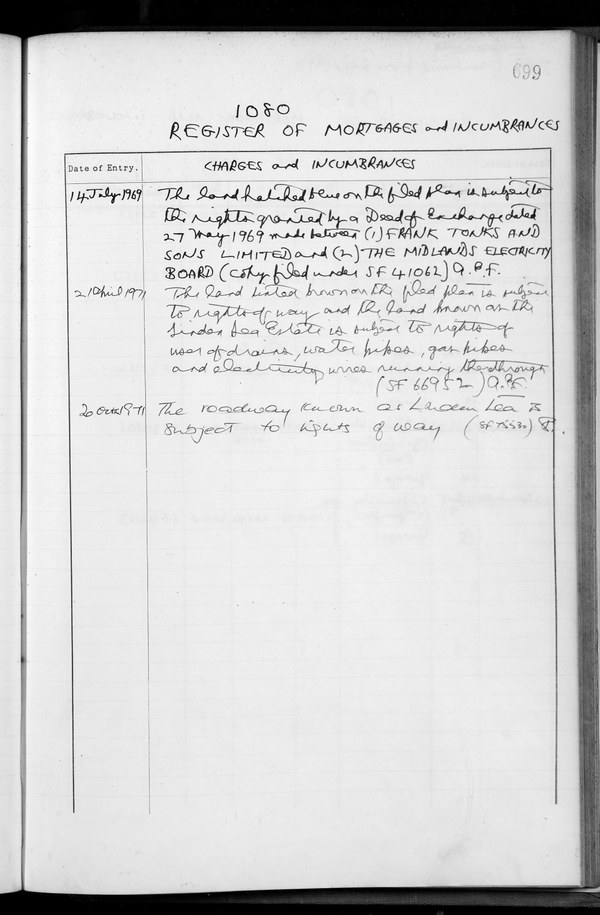 699
1080
REGISTER OF MORTGAGES and INCUMBRANCES
Date of Entry.
CHARGES and INCUMBRANCES
14 July 1969
The land hatched blue on the filed plan is subject to
the rights granted by a Deed of Exchange dated
27 May 1969 made between (1) FRANK TONKS AND
SONS LIMITED and (2) THE MIDLANDS ELECTRICITY
BOARD (Copy filed under SF 41062) A.P.F.
2 April 1971
The land tinted brown on the filed plan is subject
to rights of way and the land known as the
Linden Lea Estate is subject to rights of
user of drains, water pipes, gas pipes
and electricity wires running therethrough
(SF 66952) A.P.F.
20 Oct 1971
The roadway known as Linden Lea is
subject to rights of way (SF 75530)